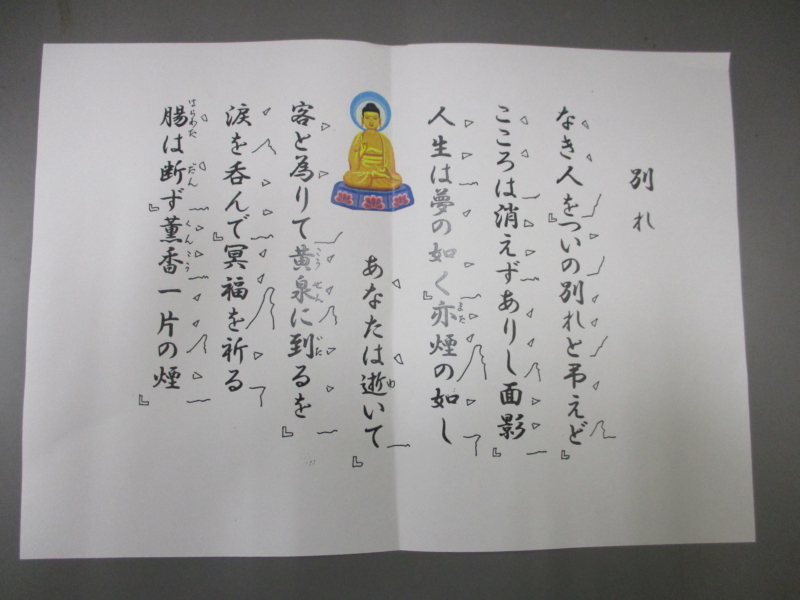 別れ
なき人をついの別れと弔えど
こころは消えずありし面影
人生は夢の如く亦煙の如し
あなたは逝いて
客と為りて黄泉に到るを
涙を呑んで冥福を祈る
腸は断ず薫香一片の煙